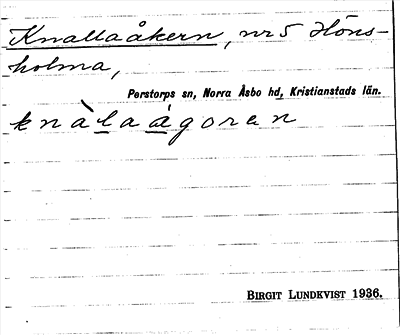 Knallaåkern, nr 5 Höns-
holma,
Perstorps sn, Norra Åsbo hd, Kristianstads län.
knàlaágoren
BIRGIT LUNDKVIST 1936.